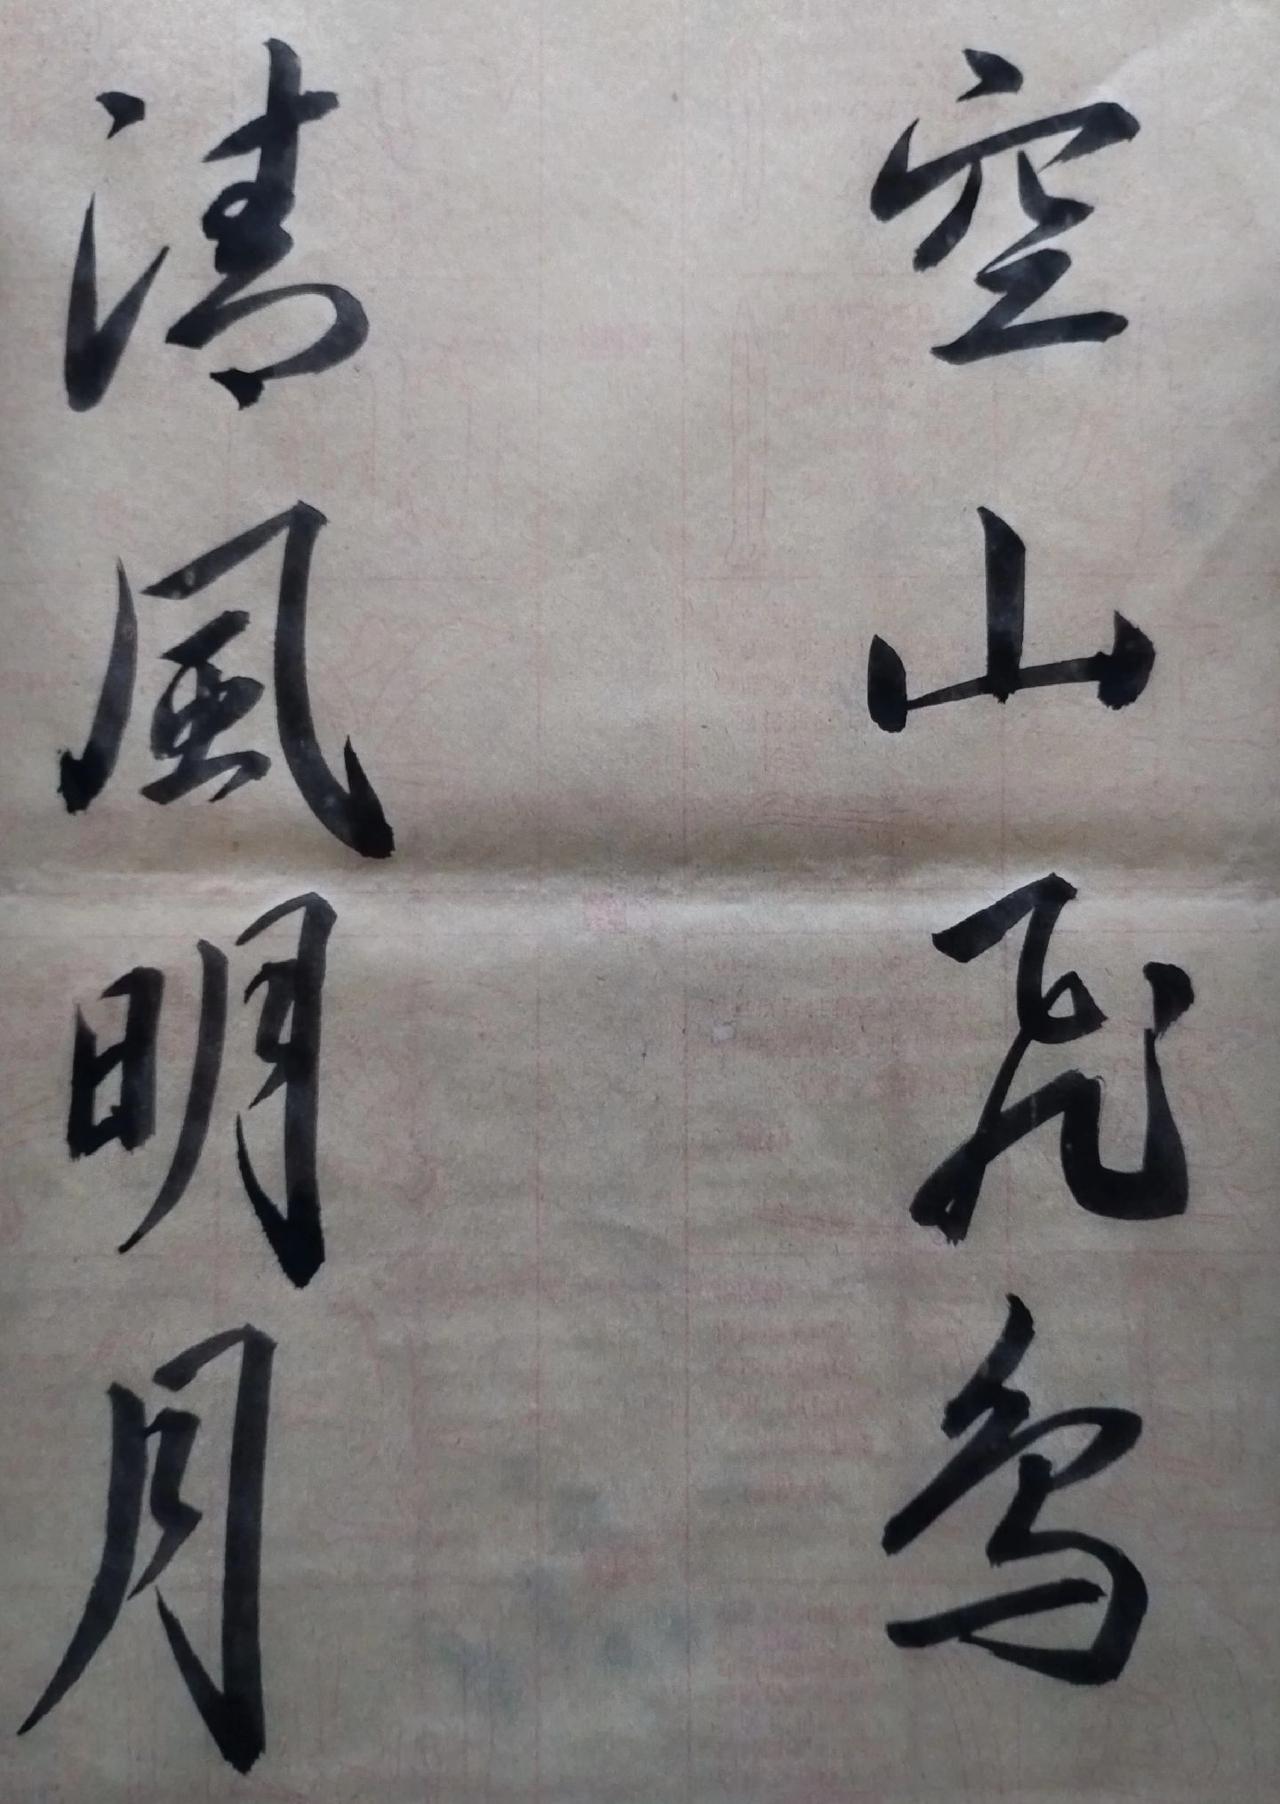 空山飛鳥
清風明月